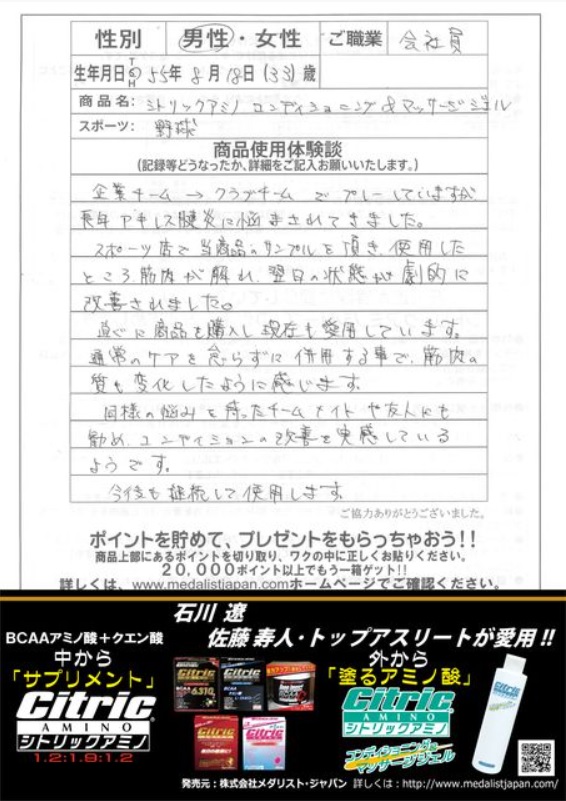 性別 男性・女性 ご職業 会社員
生年月日 T・S・H 55年 8月 18日(33)歳
商品名: シトリックアミノ コンディショニング&マッサージジェル
スポーツ: 野球
商品使用体験談
(記録等どうなったか、詳細をご記入お願いいたします。)
企業チーム→クラブチームでプレーしていますが
長年アキレス腱炎に悩まされてきました。
スポーツ店で当商品のサンプルを頂き、使用した
ところ、筋肉が解れ、翌日の状態が劇的に
改善されました。
直ぐに商品を購入し現在も愛用しています。
通常のケアを怠らずに併用する事で、筋肉の
質も変化したように感じます。
同様の悩みを持ったチームメイトや友人にも
勧め、コンディションの改善を実感している
ようです。
今後も継続して使用します。
ご協力ありがとうございました。
ポイントを貯めて、プレゼントをもらっちゃおう!!
商品上部にあるポイントを切り取り、ワクの中に正しくお貼りください。
20,000ポイント以上でもう一箱ゲット!!
詳しくは、www.medalistjapan.com/ホームページでご確認ください。
石川 遼
佐藤 寿人・トップアスリートが愛用!!
BCAAアミノ酸+クエン酸
中から
「サプリメント」
Citric
AMINO
シトリックアミノ
1.2:1.9:1.2
外から
「塗るアミノ酸」
Citric
AMINO
シトリックアミノ
コンディショニング&
マッサージジェル
発売元:株式会社メダリスト・ジャパン 詳しくは:http://www.medalistjapan.com/